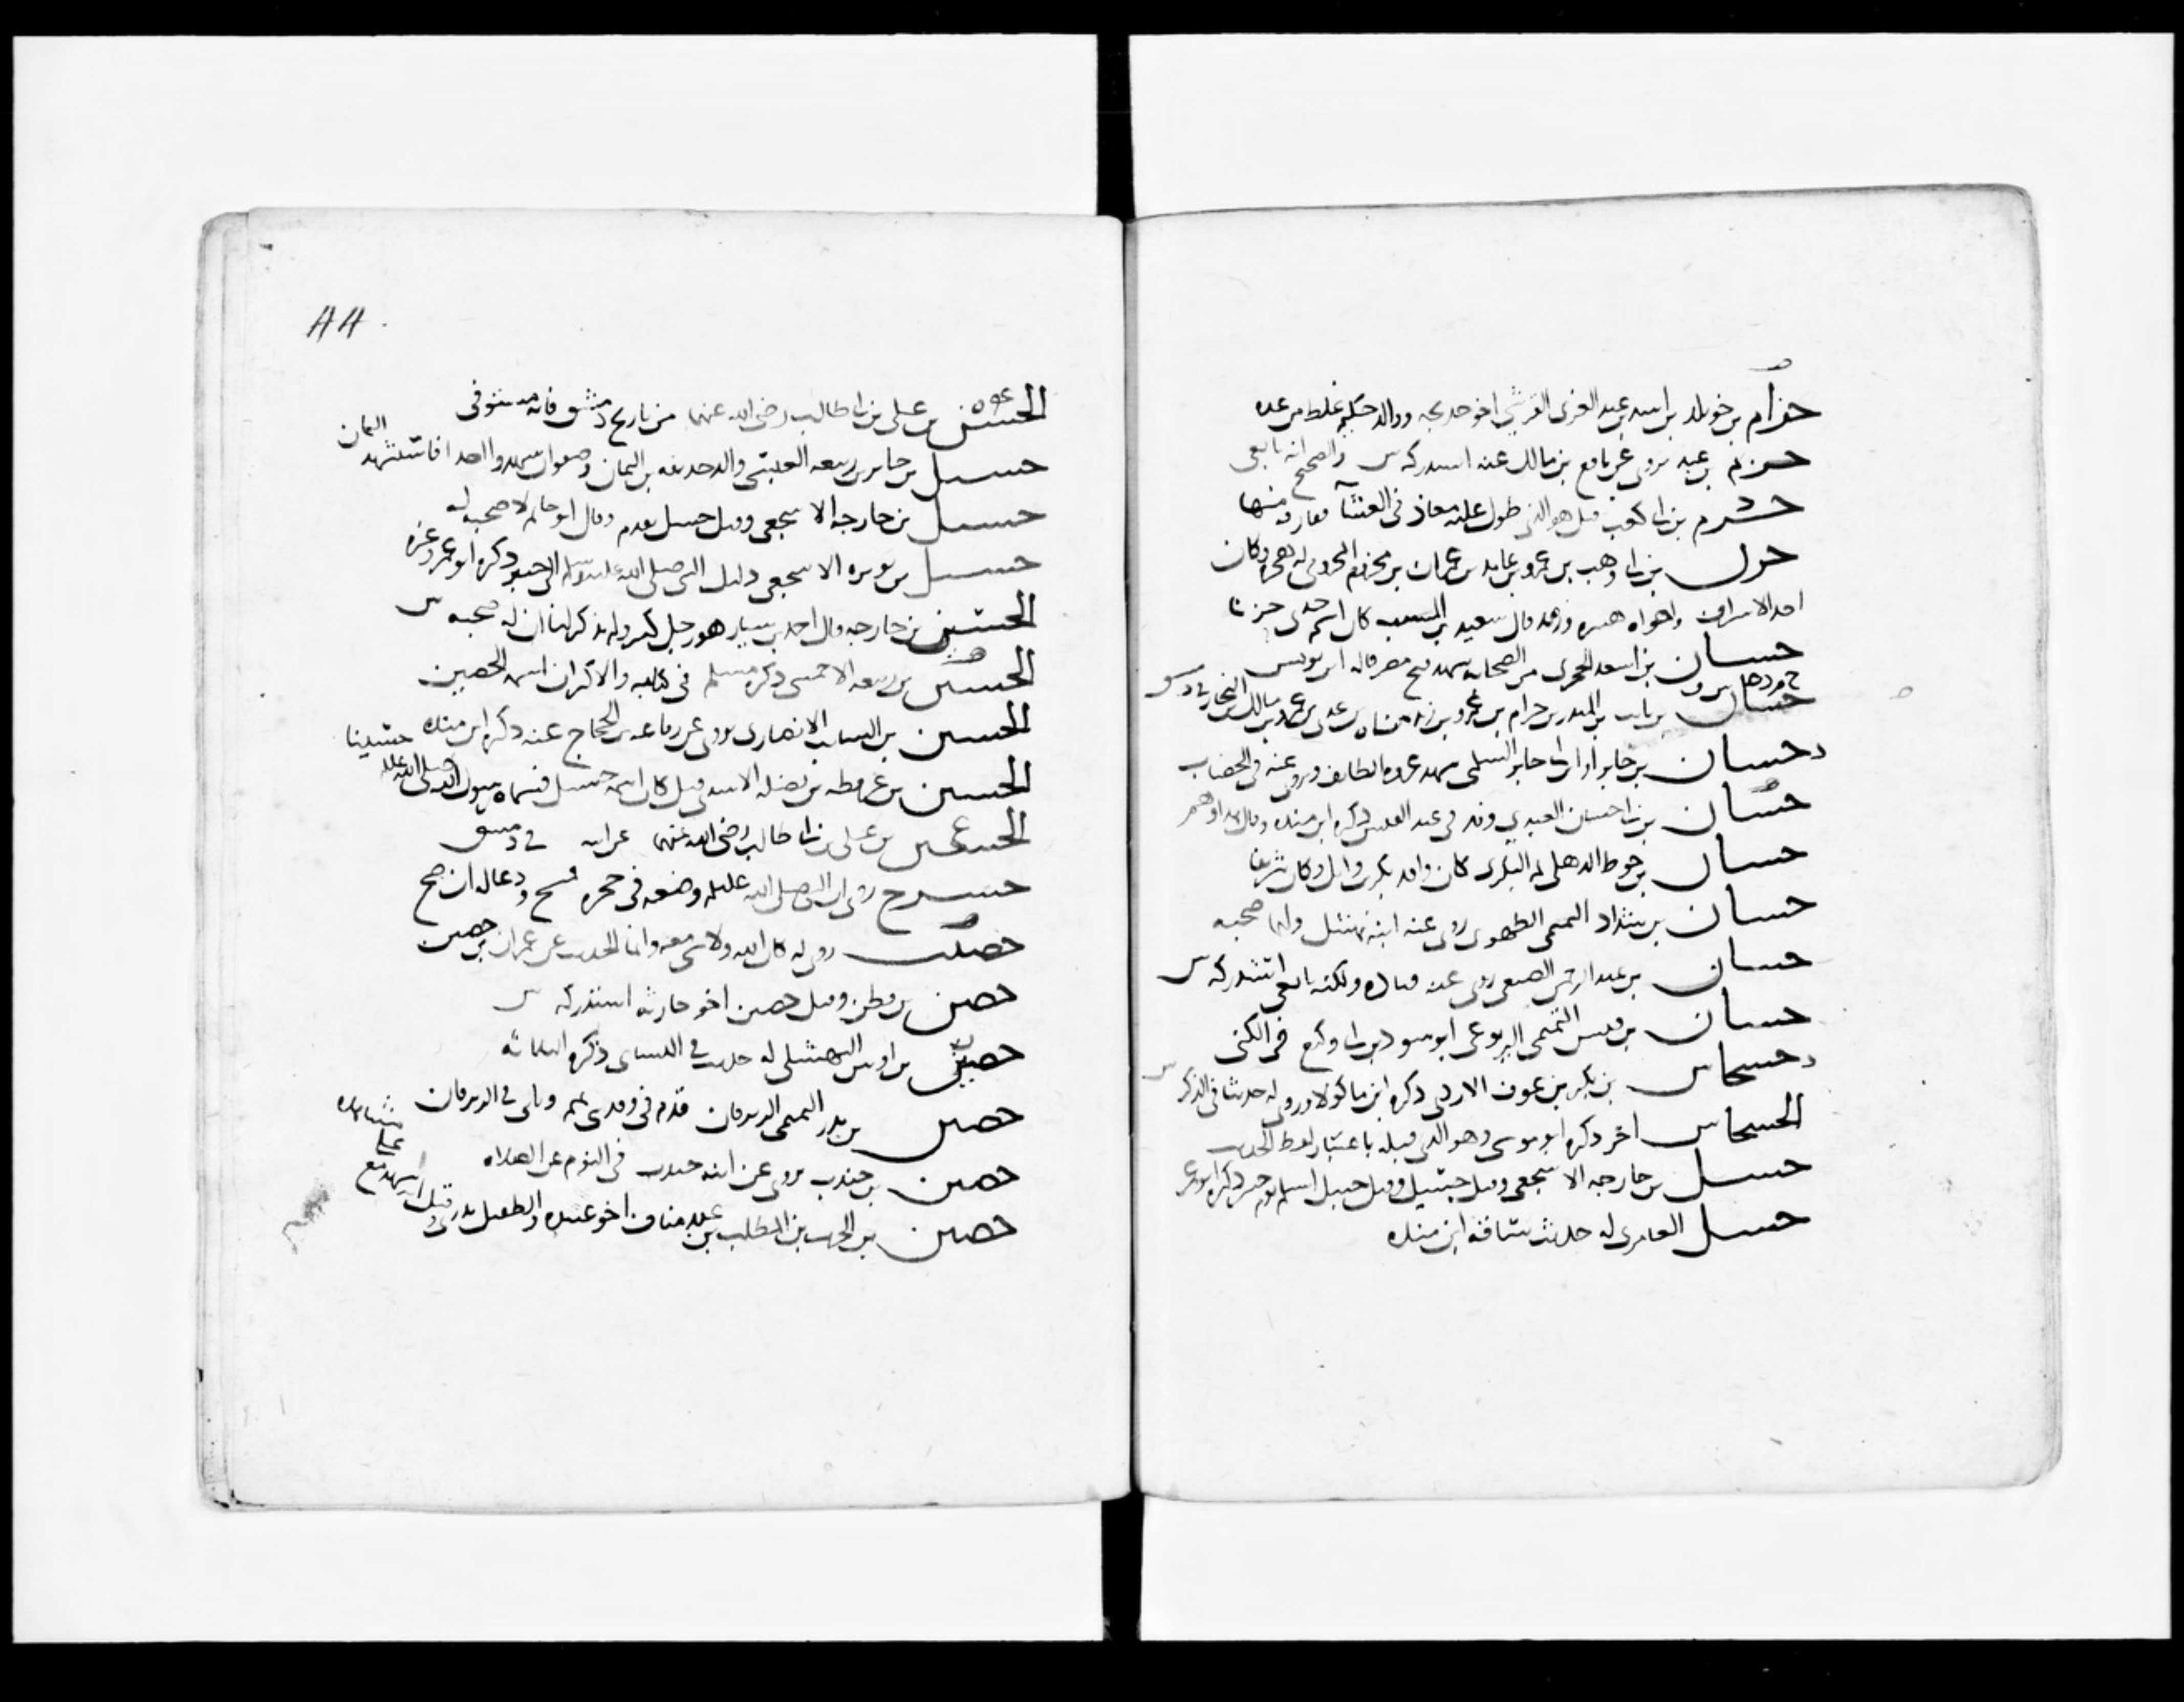 حزام بن خويلد بن اسد بن عبد العزى القرشي اخو خديجه ووالد حكيم غلط من عده
حزم بن عبد يروى عن نافع بن مالك عنه استدركه س والصحيح انه تابعى
حزم بن ابى كعب قيل هو الذى طول عليه معاذ فى العشآ ففارقه منها
حزن بن ابى وهب بن عمرو بن عايد بن عمران بن مخزوم المخزومى له هجره وكان
احد الاشراف واخواه هبيره ويزيد قال سعيد بن المسيب كان اسم جدى حزنا
حسان بن اسعد الحجرى من الصحابه شهد فتح مصر قاله ابن يونس
حسان بن ثابت بن المنذر بن حرام بن عمرو بن زيد مناه بن عدى بن عمرو بن مالك بن النجار
د حسان بن جابر او ابن ابى جابر السلمى شهد غزوه الطايف وروى عنه فى الخضاب
حسان بن ابى حسان العبدي وفد فى عبد القيس ذكره ابن منده
حسان بن خوط الذهلى ثم البكرى كان وافد بكر بن وايل وكان شريفا
حسان بن شداد التميمى الطهوى روى عنه ابنه نهشل ولها صحبه
حسان بن عبد الرحمن الضبعى روى عنه قتاده ولكنه تابعى استدركه س
حسان بن قيس التميمى اليربوعى ابو سود بن ابى وكيع فى الكنى
د حسحاس بن بكر بن عوف الازدى ذكره ابن ماكولا وروى له حديثا فى الذكر س
الحسحاس اخر ذكره ابو موسى وهو الذى قبله باعتبار لفظ الحديث
حسل بن خارجه الاشجعى وقيل حسيل وقيل حنبل اسلم يوم خيبر ذكره ابو عمر
حسل العامرى له حديث ساقه ابن منده
٨٨
الحسن بن على بن ابى طالب رضى الله عنهما من تاريخ دمشق فانه مستوفى
حسيل بن جابر بن ربيعه العبسى والد حذيفه بن اليمان وصفوان شهدوا احدا فاستشهد اليمان
حسيل بن خارجه الاشجعى وقيل حسل تقدم وقال ابو حاتم لا صحبه له
حسيل بن نويره الاشجعى دليل النبى صلى الله عليه وسلم الى خيبر ذكره ابو عمر وغيره
الحسين بن خارجه قال احمد بن سيار هو رجل كبير ولم يذكر لنا ان له صحبه س
الحسين بن ربيعه الاحمسى ذكره مسلم فى كتابه والاكثر ان اسمه الحصين
الحسين بن السايب الانصارى يروى عن رفاعه بن الحجاج عنه ذكره ابن منده حسينا
الحسين بن عرفطه بن نضله الاسدى قيل كان اسمه حسيل فسماه رسول الله صلى الله عليه
الحسين بن على بن ابى طالب رضى الله عنهما
حشرج روى ان النبى صلى الله عليه وضعه فى حجره فمسح ودعا له ان صح
حصيب روى له كان الله ولا شى معه وانما الحديث عن عمران بن حصين
حصن بن قطن وقيل حصين اخو حارثه استدركه س
حصين بن اوس النهشلى له حديث فى النساى ذكره الثلاثه
حصين بن بدر التميمى الزبرقان قدم فى وفد بنى تميم وياتى فى الزبرقان
حصين بن جندب يروى عن ابنه جندب فى النوم عن الصلاه
حصين بن الحرث بن المطلب بن عبد مناف اخو عبيده والطفيل بدرى